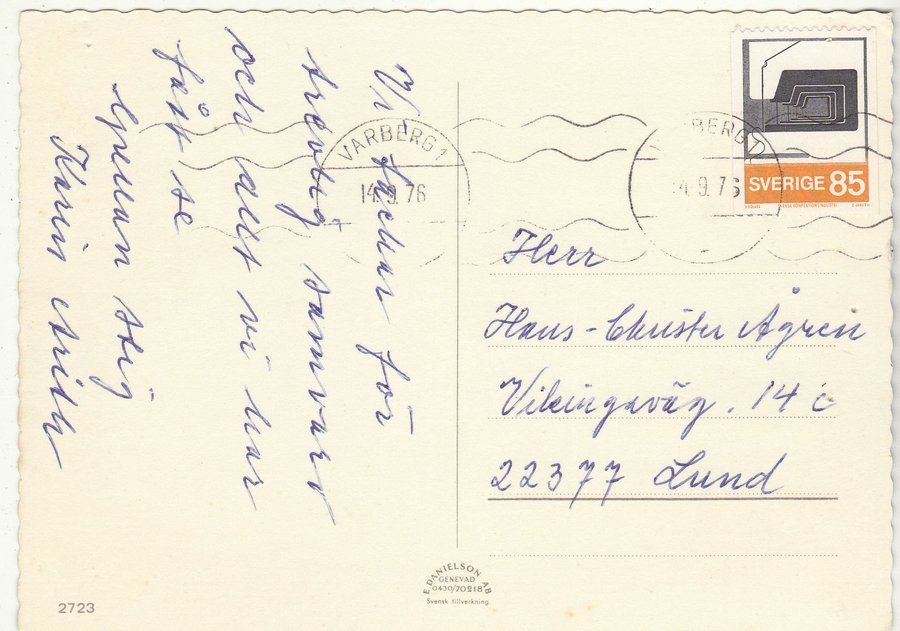 Vi tackar för
trevlig samvaro
och allt vi har
fått se
Gunnan Stig
Karin
VARBERG 1
14.9.76
VARBERG 1
14.9.76
SVERIGE 85
Herr
Hans-Christer Ågren
Vikingaväg. 14 c
22377 Lund
E. DANIELSON AB
GENEVAD
0430/70218
Svensk tillverkning
2723